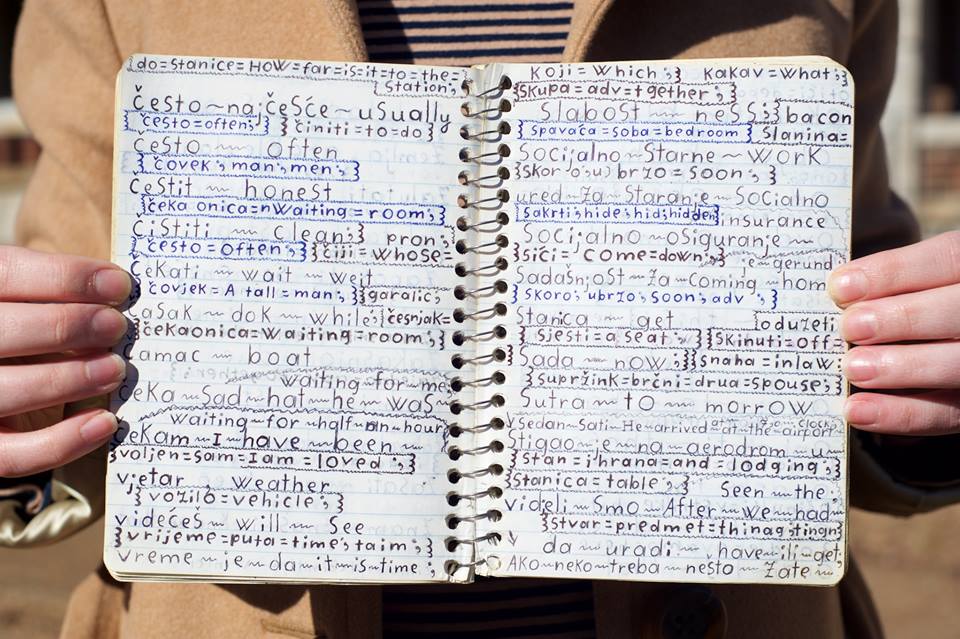 do=stanice=HOW=far=is=it=to=the=
station;
Često~najčešće~usually
často=often; } { činiti=to=do }
često ~ often
{ čovek; man; men; }
čestit ~ honest
{ čeka onica=nWaiting=room; }
Čistiti ~ clean; } pron; {
{ često=often; } { čiji=whose=
Čekati ~ wait ~ weit
{ čovjek=A tall=man; } { garalic;
časak ~ dok ~ while; { česnjak=
{ čekaonica=waiting=room; }
čamac ~ boat
waiting~for~me;
čeka~Sad~hat~he~was~
waiting~for~half~an~hour
čekam~I~have~been~
voljen=sam=I am=loved; }
vjetar ~ weather
{ vozilo=vehicle; }
videćeš ~ will ~ See
{ vrijeme=puta=time; taim; }
vreme~je~da~it~is~time;
koji=which; } kakav=what; }
{ skupa=adv=tgether; }
slabost ~ ness; } bacon
{ spavaća=soba=bedroom } { slanina=
socijalno~starne~work
{ skor'o; u) brzo=soon; }
ured~za~staranje~socialno
{ sakrti; hide; hid; hidden } insurance
socijalno~osiguranje~
{ sići=come=down; } je~gerund
Sadašnjost~za~coming~hom
{ skoro; ubrzo; soon; adv; }
stanica ~ get oduzeti
{ sjesti=a seat; } { skinuti=off=
Sada ~ now; } { snaha=inlaw;
{ supržink=brčni=drua=spouse; }
Sutra~to~morrow
Vsedan~sati~He~arrived~at~the~airport
Stigao~je~na~aerodrom~u
{ stan=i'hrana=and=lodging; }
stanica=table; } Seen~the
videli~smo~After~we~had
{ stvar=predmet=thinag stingn }
da~uradi~have~ili~get
Ako~neko~treba~nešto~Zate~